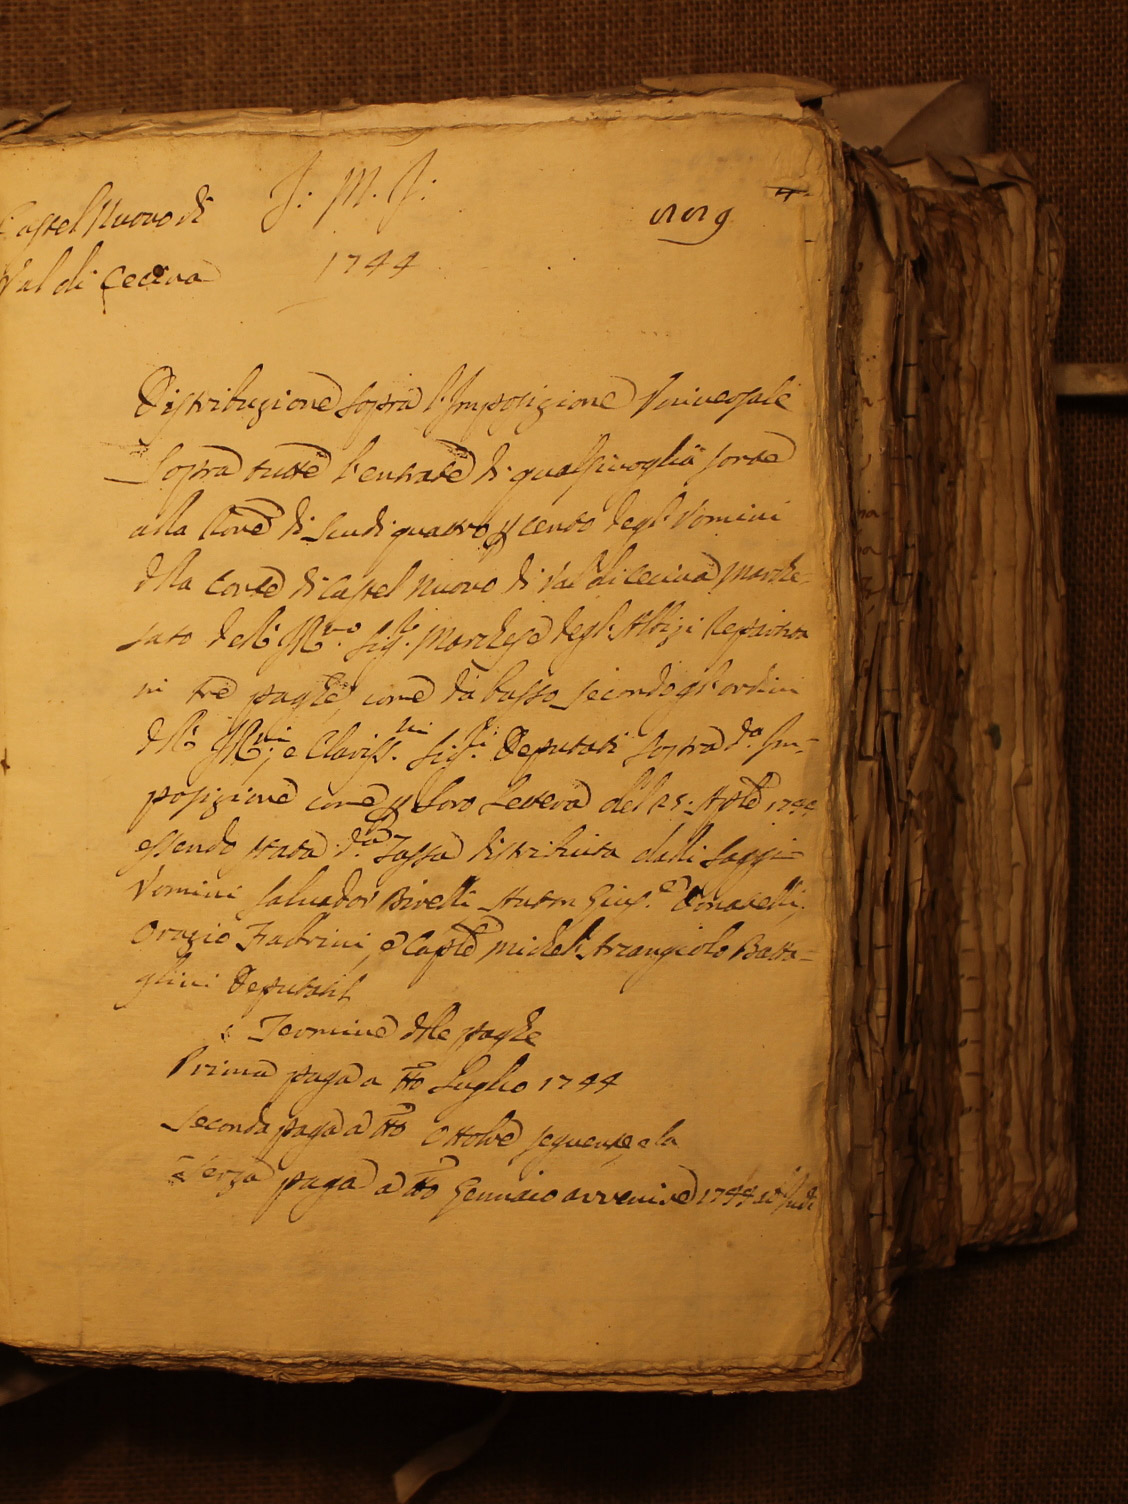 Castel Nuovo di
Val di Cecina
J: M. J:
1744
4
Distribuzione sopra l'Imposizione Universale
Sopra tutte l'entrate di qualsivoglia sorte
alla di Scudi quattro p cento degl'Uomini
dlla Corte di Castel Nuovo di Val di Cecina Marche-
sato dell' Sig.re Marchese degl'Albizi Repartita
in tre paghe come da basso secondo gl'ordini
dll' e Clariss.mi Sig.ri Deputati sopra d.a Im-
posizione come p loro Lettera del 25: 1744
essendo stata d.a Tassa distribuita dalli Saggi
Uomini Salvador Birelli Giuse.e Donatelli,
Orazio Fabrini, e Michel'Arcangiolo Batta-
glini Deputati
Termine dlle paghe
Prima paga a tto Luglio 1744
Seconda paga a tto Ottobre seguente e la
Terza paga a tto Gennaio avvenire 1744